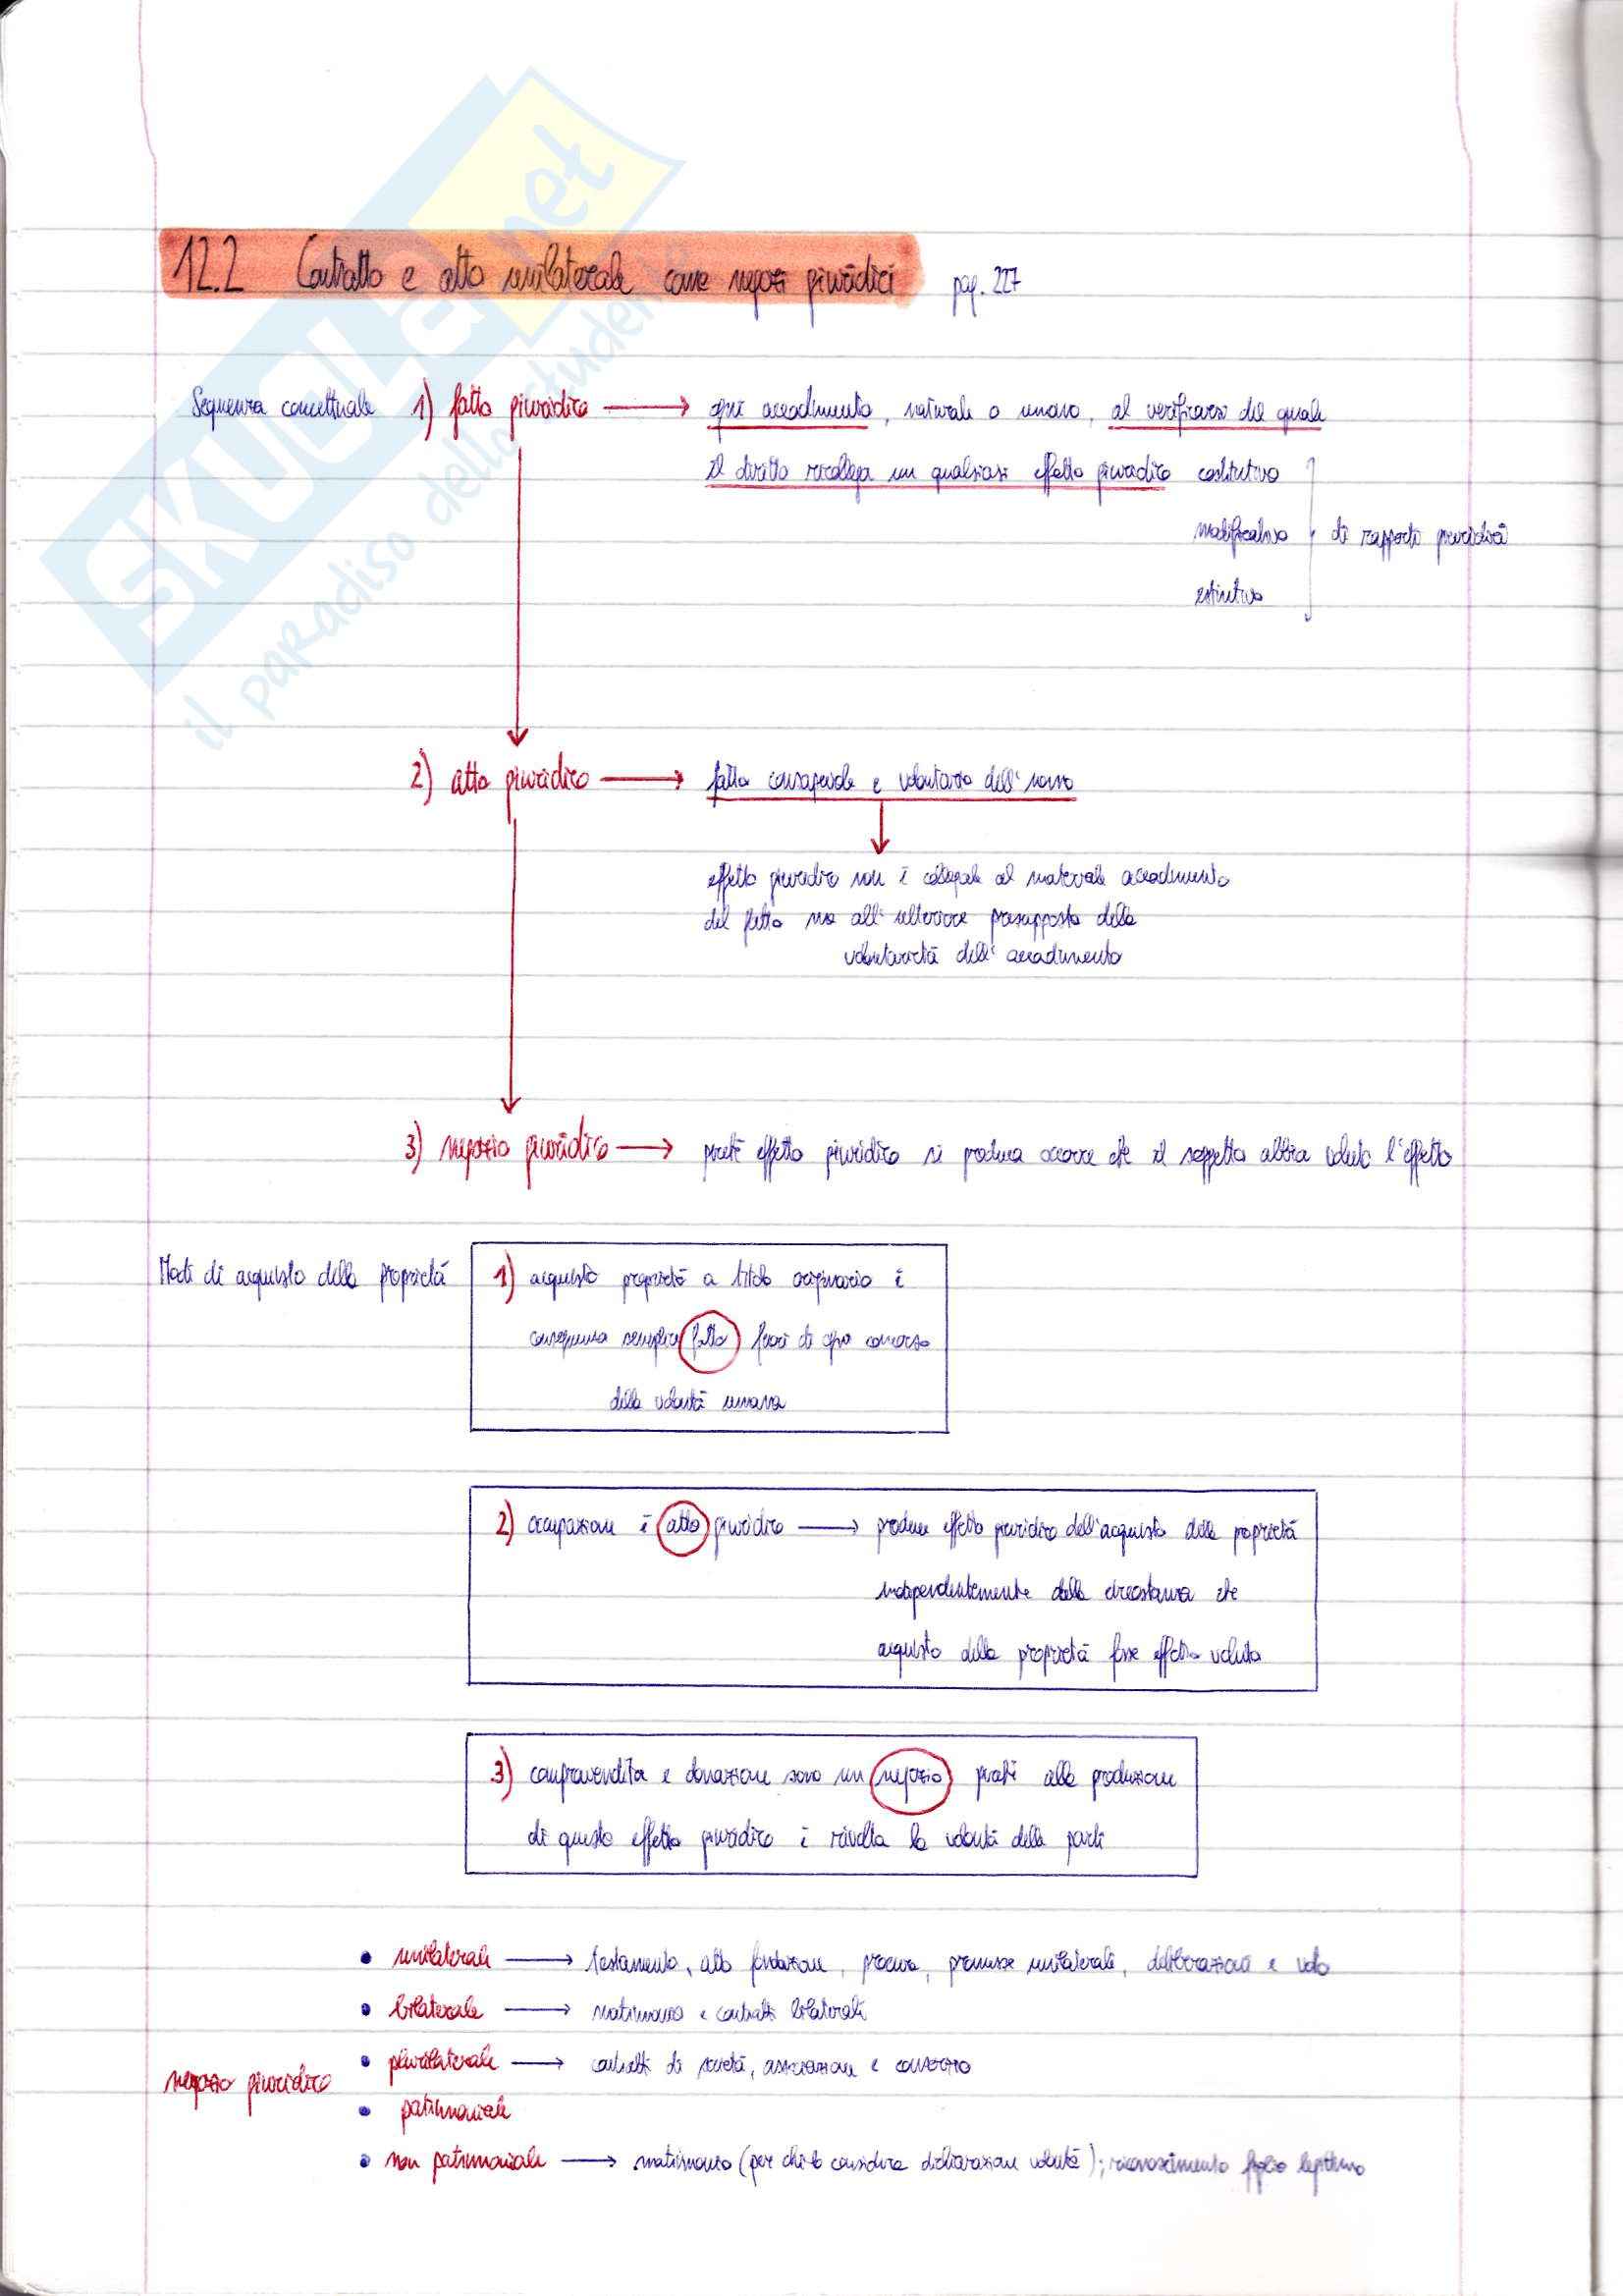 12.2 Contratto e atto unilaterale come negozi giuridici pag. 227
Sequenza concettuale 1) fatto giuridico → ogni accadimento, naturale o umano, al verificarsi del quale
il diritto ricollega un qualsiasi effetto giuridico costitutivo
modificativo di rapporti giuridici
estintivo
2) atto giuridico → fatto consapevole e volontario dell'uomo
effetto giuridico non è collegato al materiale accadimento
del fatto ma all'ulteriore presupposto della
volontarietà dell'accadimento
3) negozio giuridico → perché effetto giuridico si produca occorre che il soggetto abbia voluto l'effetto
Modi di acquisto della proprietà 1) acquisto proprietà a titolo originario è
conseguenza semplice fatto fuori di ogni concorso
della volontà umana
2) occupazione è atto giuridico → produce effetto giuridico dell'acquisto della proprietà
indipendentemente dalla circostanza che
acquisto della proprietà fosse effetto voluto
3) compravendita e donazione sono un negozio perché alla produzione
di questo effetto giuridico è rivolta la volontà delle parti
• unilaterale → testamento, atto fondazione, procura, promesse unilaterali, deliberazioni e voto
• bilaterale → matrimonio e contratti bilaterali
• plurilaterale → contratti di società, associazione e consorzio
negozio giuridico
• patrimoniale
• non patrimoniale → matrimonio (per chi lo considera dichiarazione volontà); riconoscimento figlio legittimo
SKUOLA.net
il paradiso dello studente